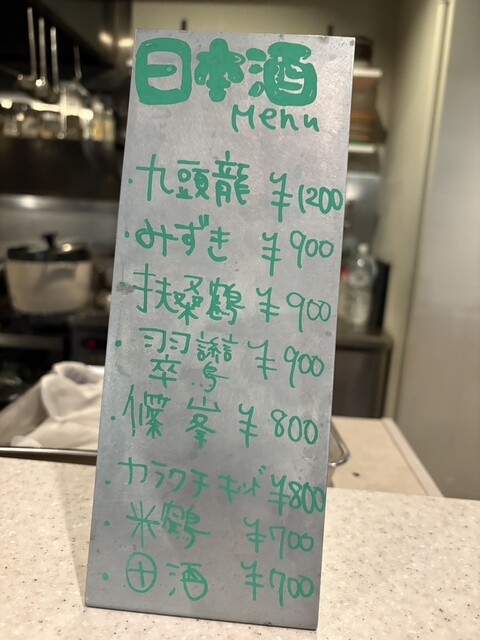 日本酒
Menu
・九頭龍 ¥1200
・みずき ¥900
扶桑鶴 ¥900
・翠 ¥900
・篠峯 ¥800
・カラクチキッド ¥800
・米鶴 ¥700
・⊕酒 ¥700